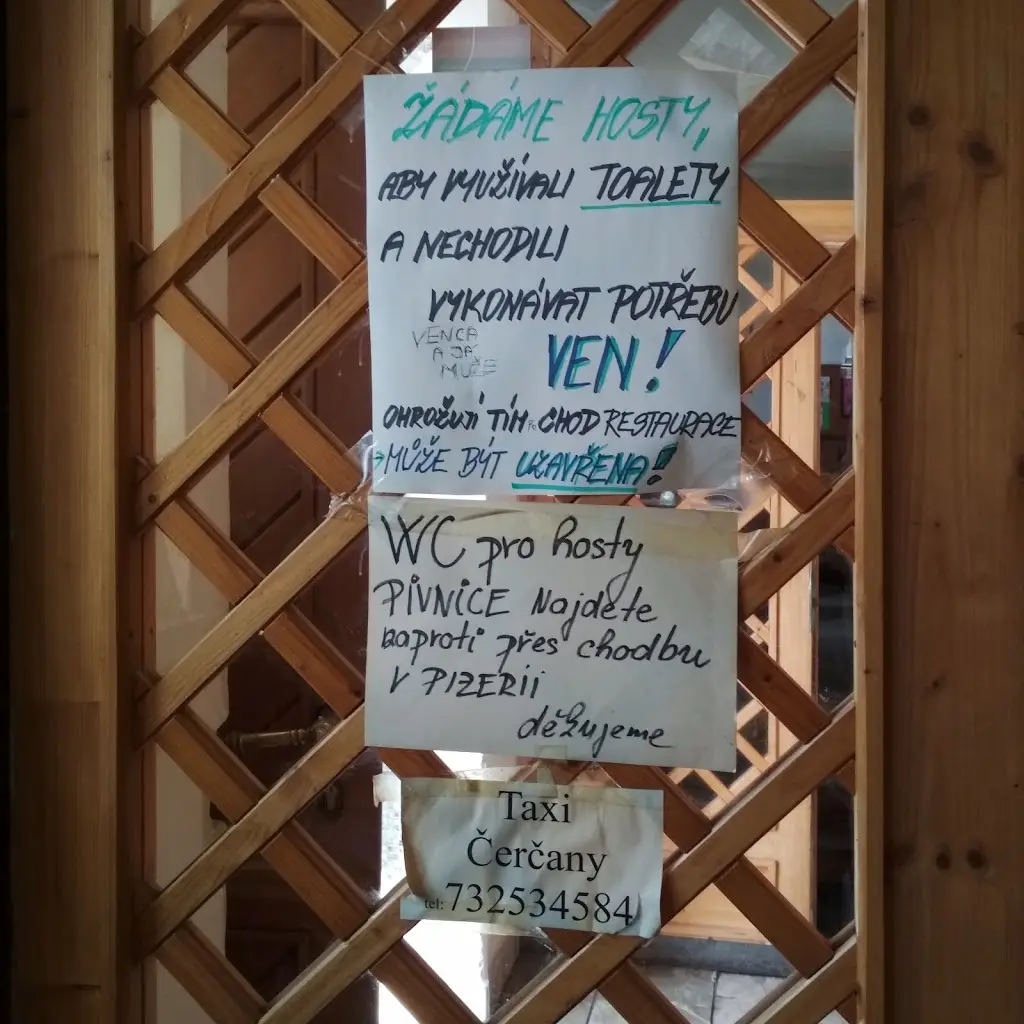 ŽÁDÁME HOSTY,
ABY VYUŽÍVALI TOALETY
A NECHODILI
VYKONÁVAT POTŘEBU
VENCA
A JÁ
MUŽE
VEN!
OHROŽUJÍ TÍM CHOD RESTAURACE
→MŮŽE BÝT UZAVŘENA!
WC pro hosty
PIVNICE Najdete
naproti přes chodbu
V PIZERII
děkujeme
Taxi
Čerčany
tel: 732534584